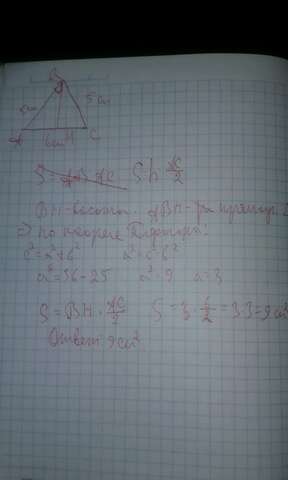 B
5см
5см
A
6см
H
C
S = AB·AC
S h AC/2
BH - высота. ABH - пр
=> по теореме Пифагора:
c² = a² + b² a² = c² - b²
a² = 36 - 25 a² = 9 a = 3
S = BH · AC/2 S = 3 · 6/2 = 3·3 = 9 см²
Ответ 9 см²